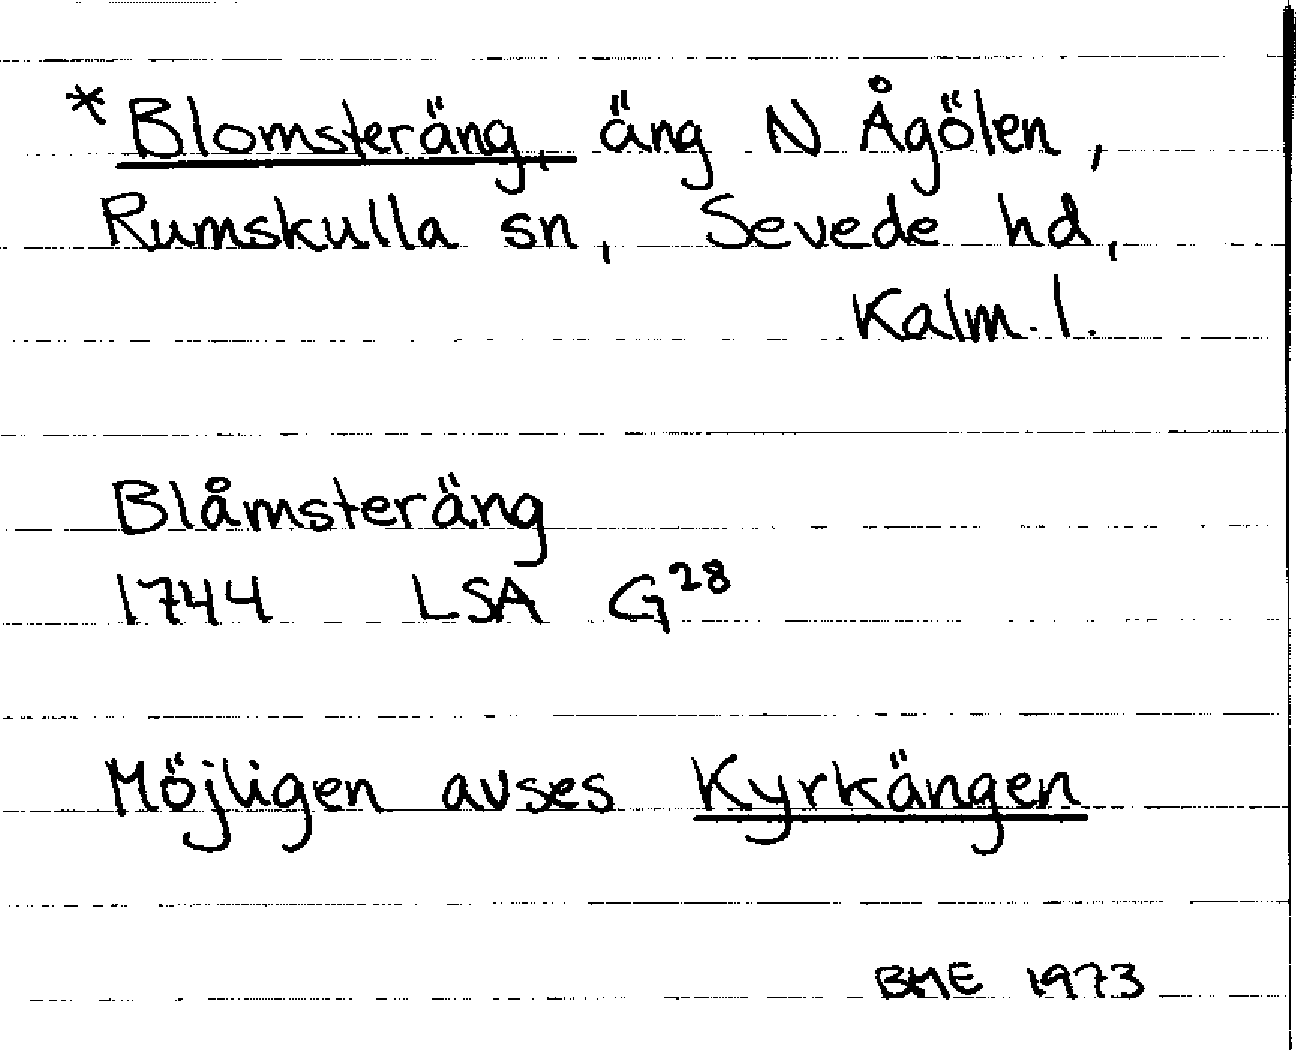 * Blomsteräng, äng N Ågölen,
Rumskulla sn, Sevede hd,
Kalm. l.
Blåmsteräng
1744 LSA G28
Möjligen avses Kyrkängen
BME 1973